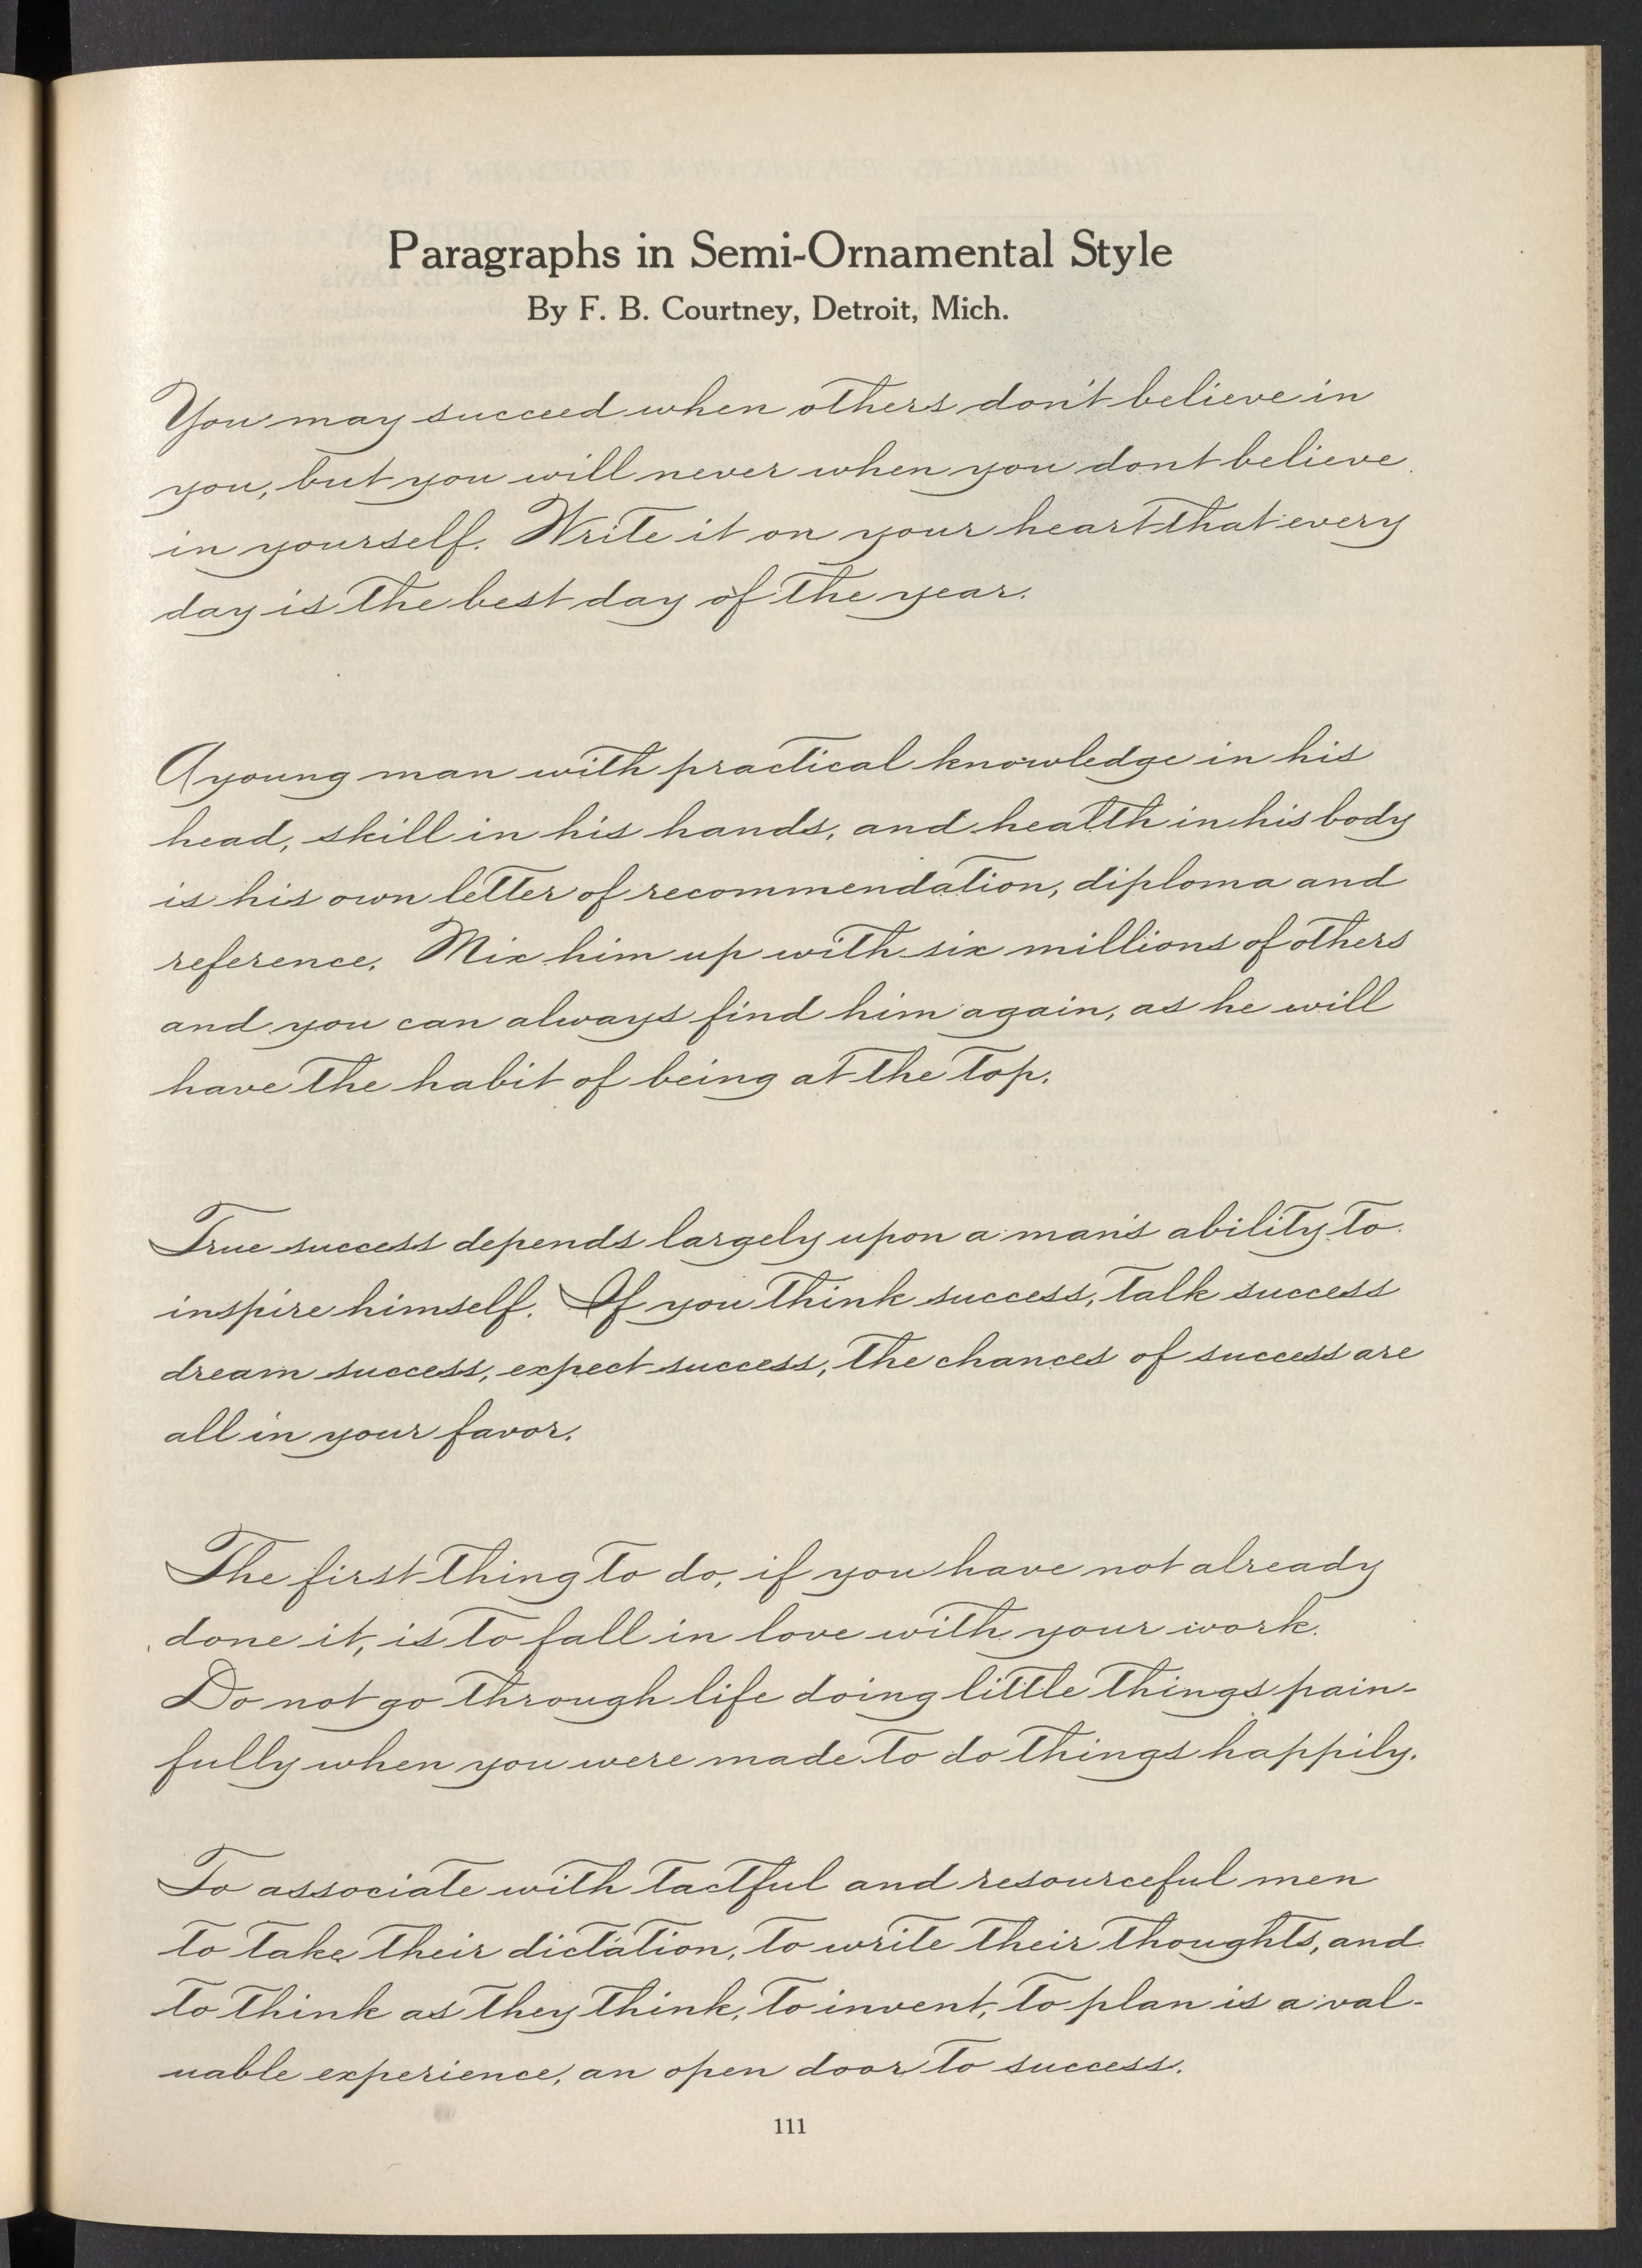 Paragraphs in Semi-Ornamental Style
By F. B. Courtney, Detroit, Mich.
You may succeed when others don't believe in
you, but you will never when you dont believe
in yourself. Write it on your heart that every
day is the best day of the year.
A young man with practical knowledge in his
head, skill in his hands, and health in his body
is his own letter of recommendation, diploma and
reference. Mix him up with six millions of others
and you can always find him again, as he will
have the habit of being at the top.
True success depends largely upon a man's ability to
inspire himself. If you think success, talk success
dream success, expect success, the chances of success are
all in your favor.
The first thing to do, if you have not already
done it, is to fall in love with your work.
Do not go through life doing little things pain-
fully when you were made to do things happily.
To associate with tactful and resourceful men
to take their dictation, to write their thoughts, and
to think as they think, to invent, to plan is a val-
uable experience, an open door to success.
111